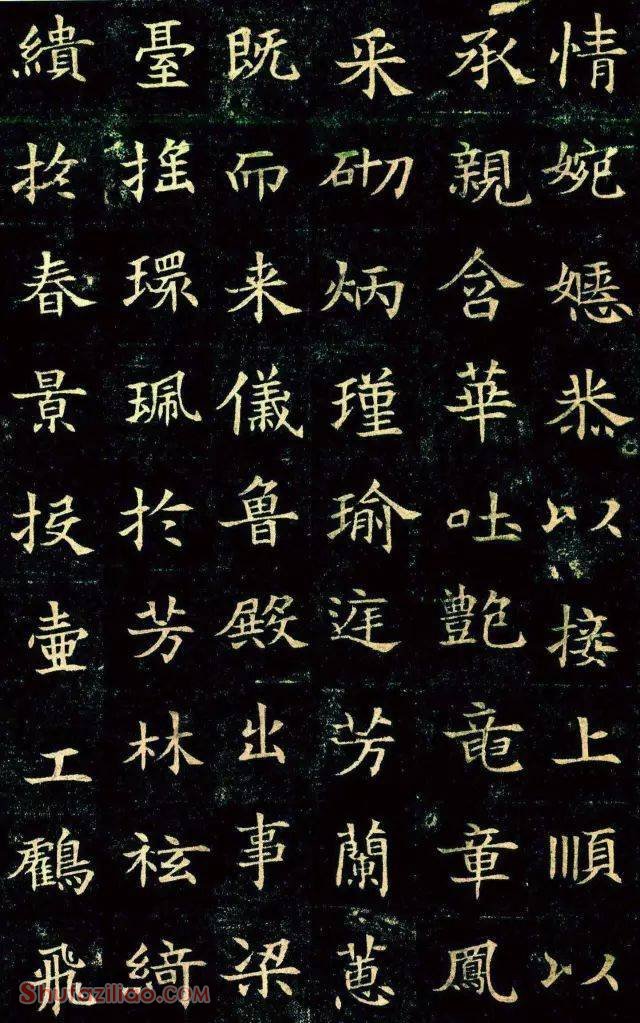 情婉嫕恭以接上順以
承親含華吐艷竜章鳳
采砌炳瑾瑜庭芳蘭蕙
既而来儀魯殿出事梁
臺搖環珮於芳林袨綺
繢於春景投壺工鶴飛
Shufaziliao.COM